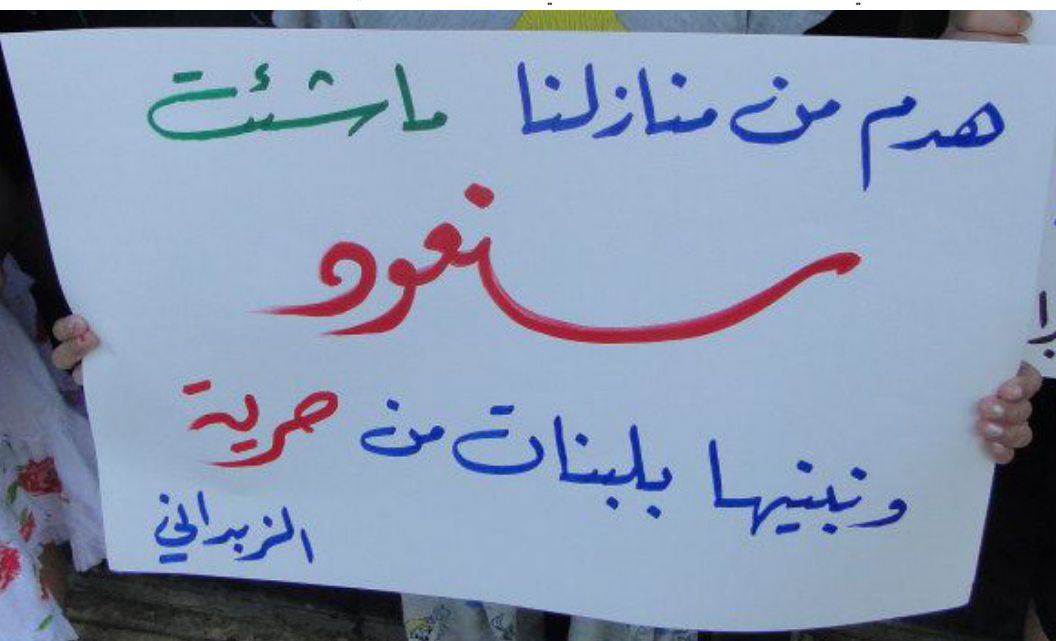 هدم من منازلنا ما شئت
سنعود
ونبنيها بلبنات من حرية
الزبداني